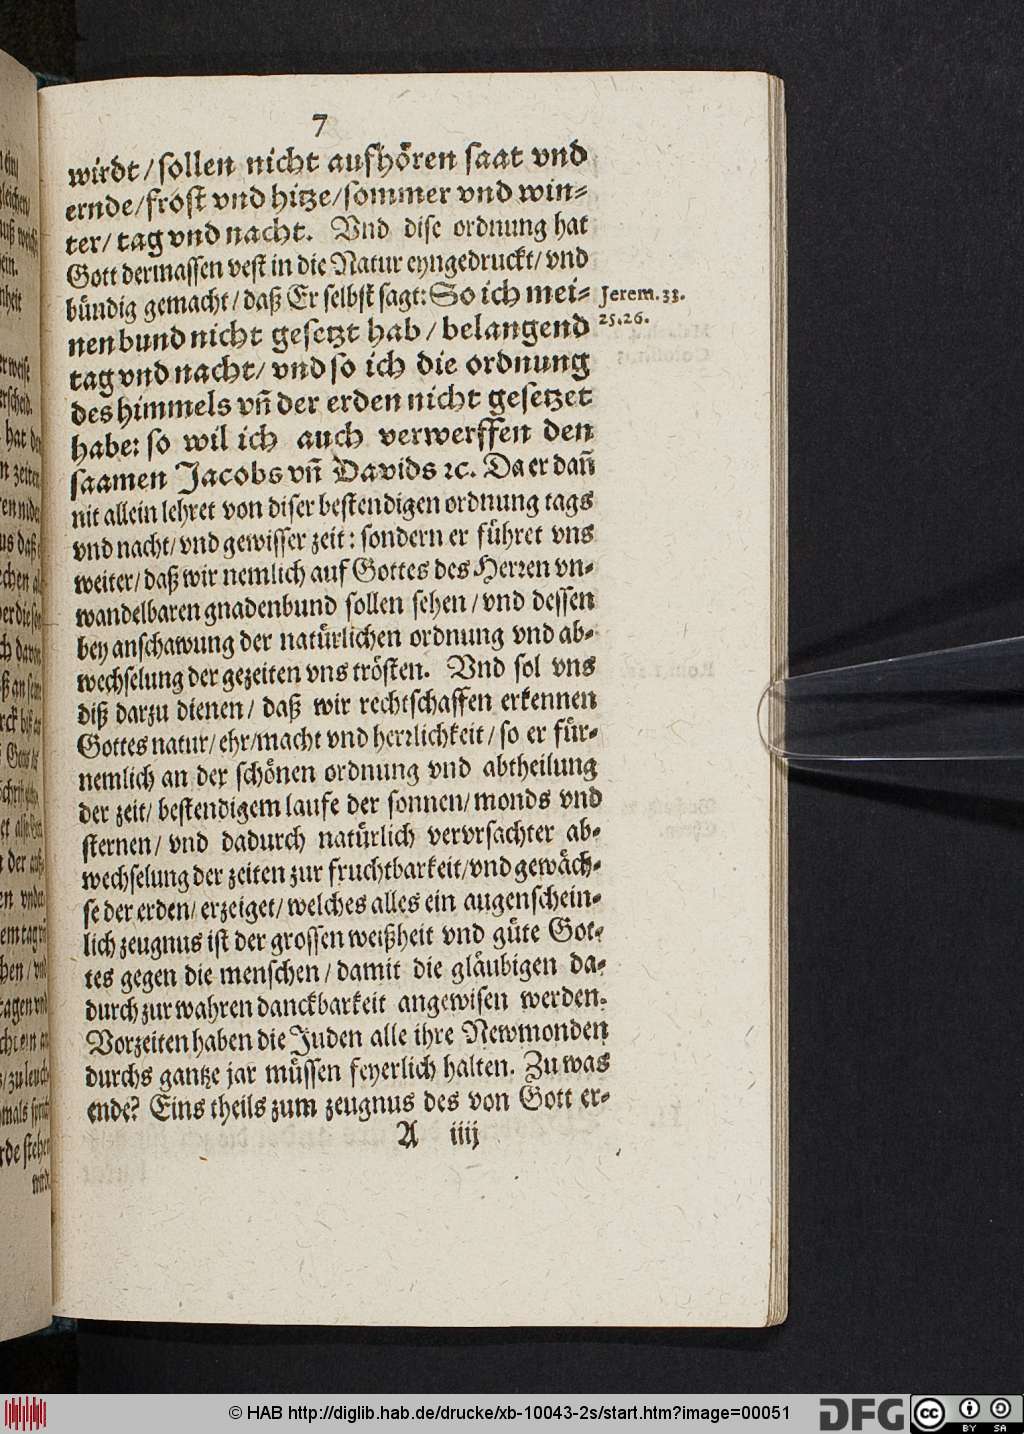 7
wirdt/sollen nicht aufhören saat vnd
ernde/frost vnd hitze/sommer vnd win-
ter/ tag vnd nacht. Vnd dise ordnung hat
Gott dermassen vest in die Natur eyngedruckt/ vnd
bündig gemacht/ daß Er selbst sagt: So ich mei-
Jerem.33.
25.26.
nen bund nicht gesetzt hab/ belangend
tag vnd nacht/ vnd so ich die ordnung
des himmels vñ der erden nicht gesetzet
habe: so wil ich auch verwerffen den
saamen Jacobs vñ Davids ꝛc. Da er dañ
nit allein lehret von diser bestendigen ordnung tags
vnd nacht/ vnd gewisser zeit: sondern er führet vns
weiter/ daß wir nemlich auf Gottes des Herꝛen vn-
wandelbaren gnadenbund sollen sehen/ vnd dessen
bey anschawung der natürlichen ordnung vnd ab-
wechselung der gezeiten vns trösten. Vnd sol vns
diß darzu dienen/ daß wir rechtschaffen erkennen
Gottes natur/ ehr/macht vnd herꝛlichkeit/ so er für-
nemlich an der schönen ordnung vnd abtheilung
der zeit/ bestendigem laufe der sonnen/ monds vnd
sternen/ vnd dadurch natürlich vervrsachter ab-
wechselung der zeiten zur fruchtbarkeit/vnd gewäch-
se der erden/ erzeiget/ welches alles ein augenschein-
lich zeugnus ist der grossen weißheit vnd güte Got-
tes gegen die menschen/ damit die gläubigen da-
durch zur wahren danckbarkeit angewisen werden.
Vorzeiten haben die Juden alle ihre Newmonden
durchs gantze jar müssen feyerlich halten. Zu was
ende? Eins theils zum zeugnus des von Gott er-
A iiij
© HAB http://diglib.hab.de/drucke/xb-10043-2s/start.htm?image=00051
DFG
cc
BY SA